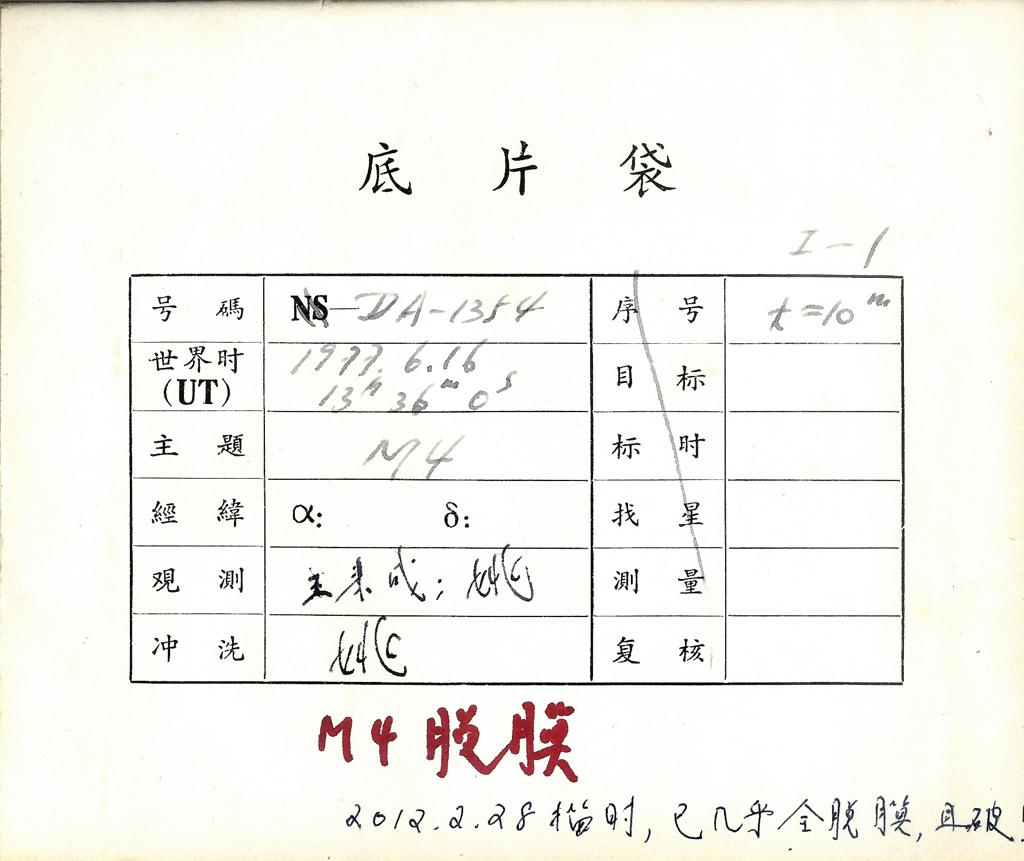 底片袋
I-1
号碼 NS-DA-1354 序号 t=10ᵐ
世界时(UT) 1977.6.16 目标
13ʰ 36ᵐ 0ˢ
主題 M4 标时
經緯 α: δ: 找星
观測 王来成; 姚 測量
冲洗 姚 复核
M4 脱膜
2012.2.28 时, 已几乎全脱膜, 且破